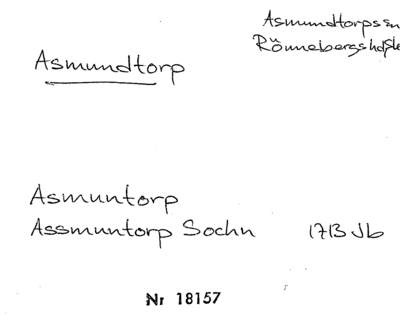 Asmundtorps sn
Rönnebergs hd
Asmundtorp
Asmuntorp
Assmuntorp Sochn 1713 Jb
Nr 18157